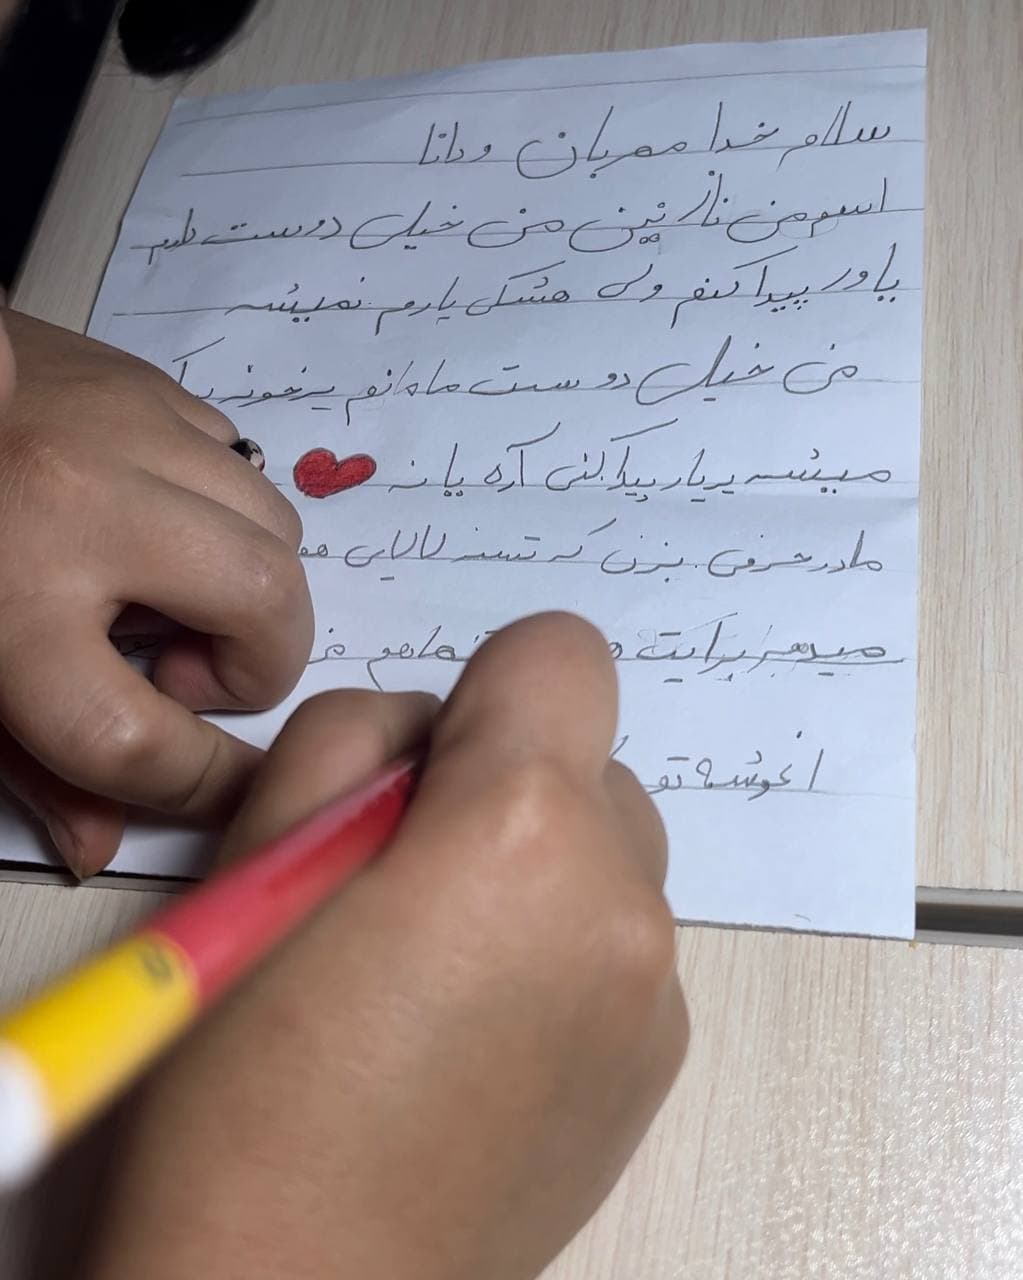 سلام خدا مهربان و دانا
اسم من نازنین من خیلی دوست دارم
یاور پیدا کنم ولی هشکی یارم نمیشه
من خیلی دوست مامانم
میشه یه یار پیدا کنی آره یا نه
مادر حرفی بزن که تشنه لالایی
میدهم برایت
اغوشه تو